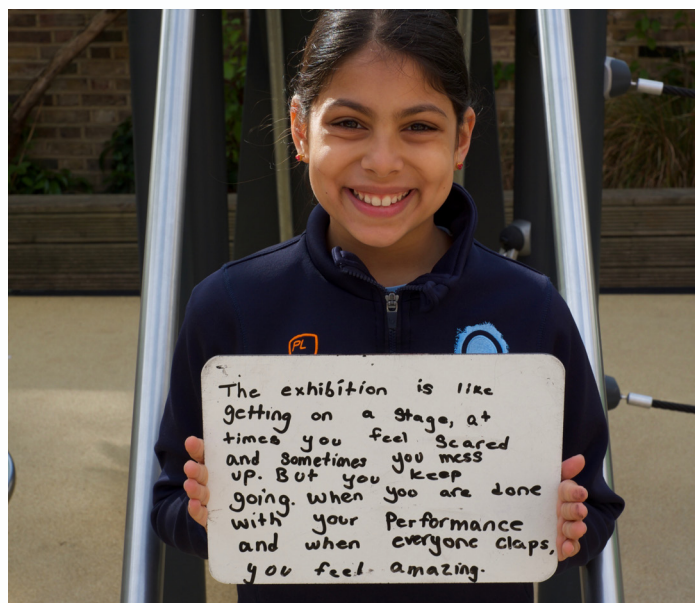 PL
The exhibition is like
getting on a stage, at
times you feel scared
and sometimes you mess
up. But you keep
going. when you are done
with your Performance
and when everyone claps,
you feel amazing.